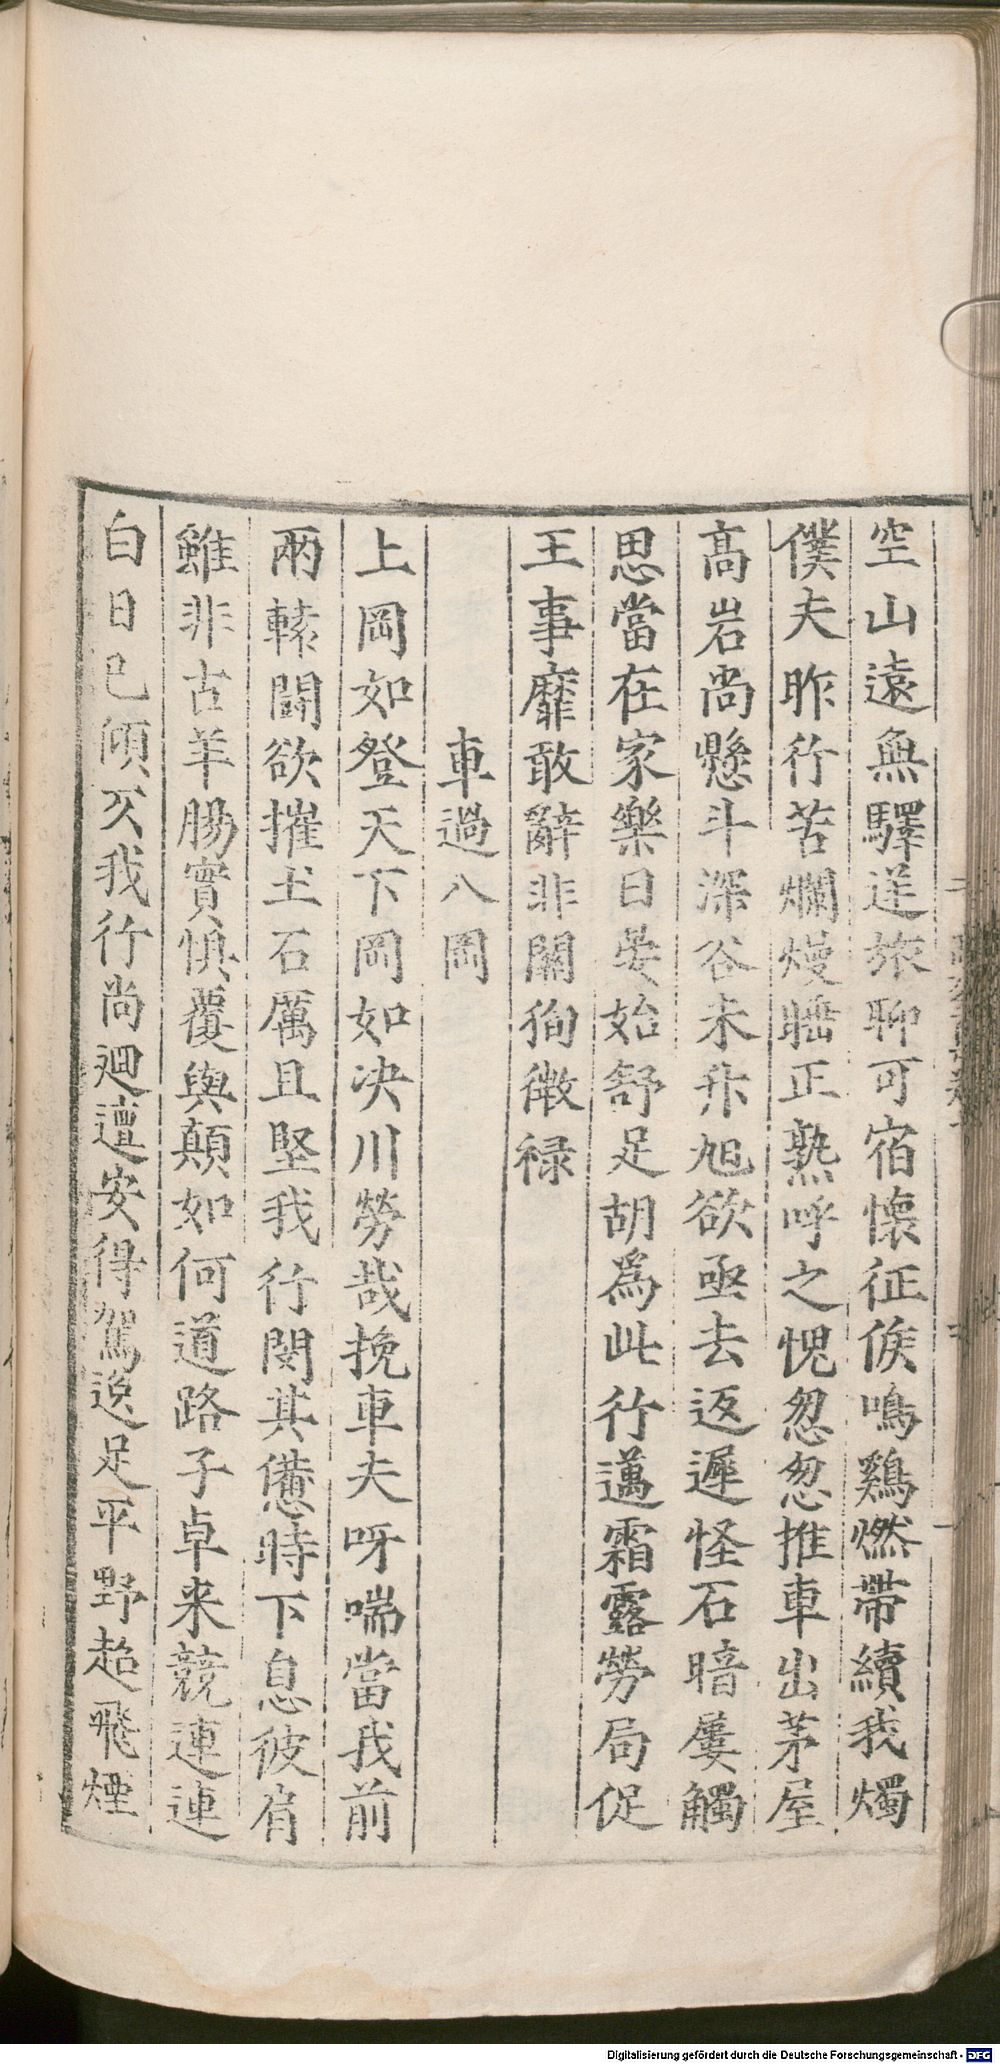 空山遠無驛逆旅聊可宿懷征俟鳴鷄燃帶續我燭
僕夫昨行苦爛熳睡正熟呼之愧怱怱推車出茅屋
高岩尚懸斗深谷未升旭欲亟去返遲怪石暗屢觸
思當在家樂日晏始舒足胡爲此行邁霜露勞局促
王事靡敢辭非關徇微祿
車過八岡
上岡如登天下岡如决川勞哉挽車夫呀喘當我前
兩轅鬪欲摧土石厲且堅我行閔其憊時下息彼肩
雖非古羊腸實惧覆與顛如何道路子卓来競連連
白日已傾仄我行尚迴邅安得駕逸足平野趋飛煙
Digitalisierung gefördert durch die Deutsche Forschungsgemeinschaft - DFG